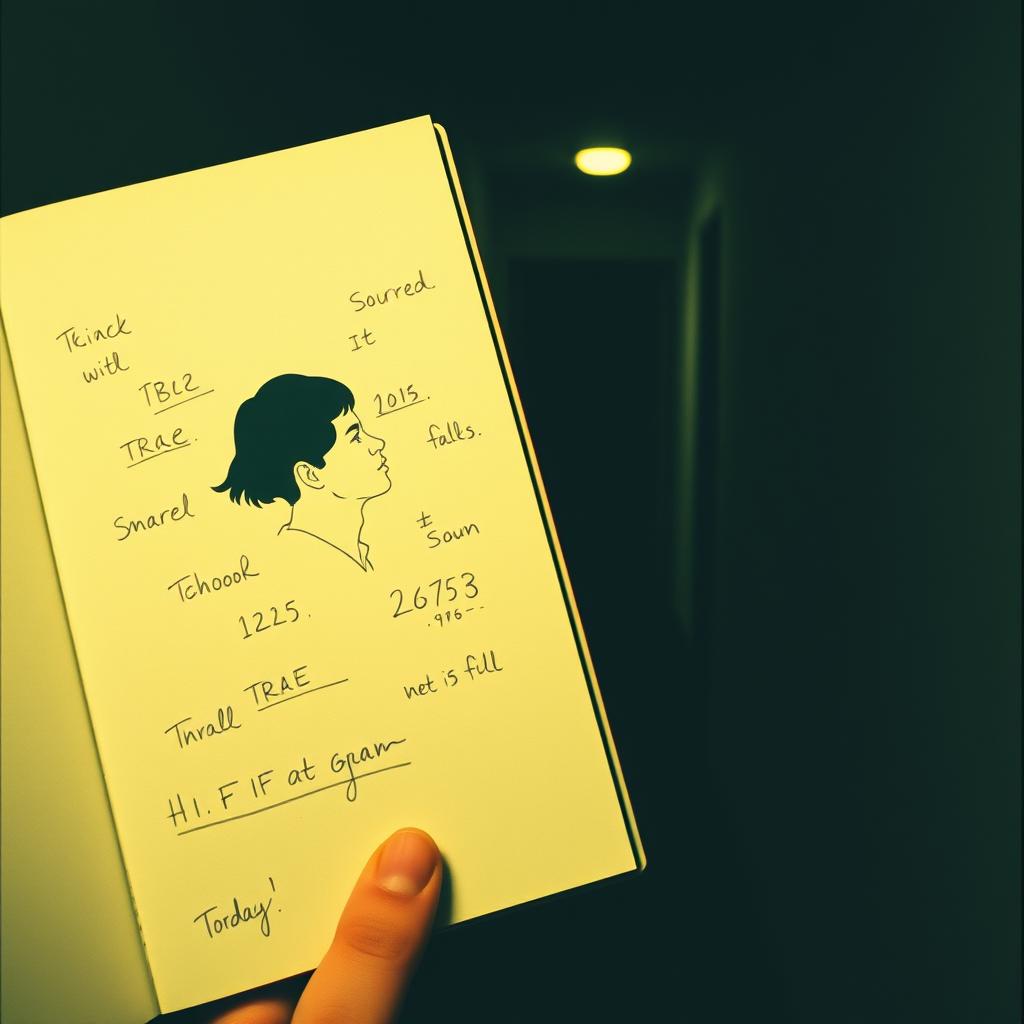 Tkinck
with
TBL2
TRAe.
Smarel
Tchook
1225.
TRAE
Thrall
H1. F IF at Gram
Torday!
Sourred.
It
2015.
falks.
±
Soun
26753
.976--
net is full